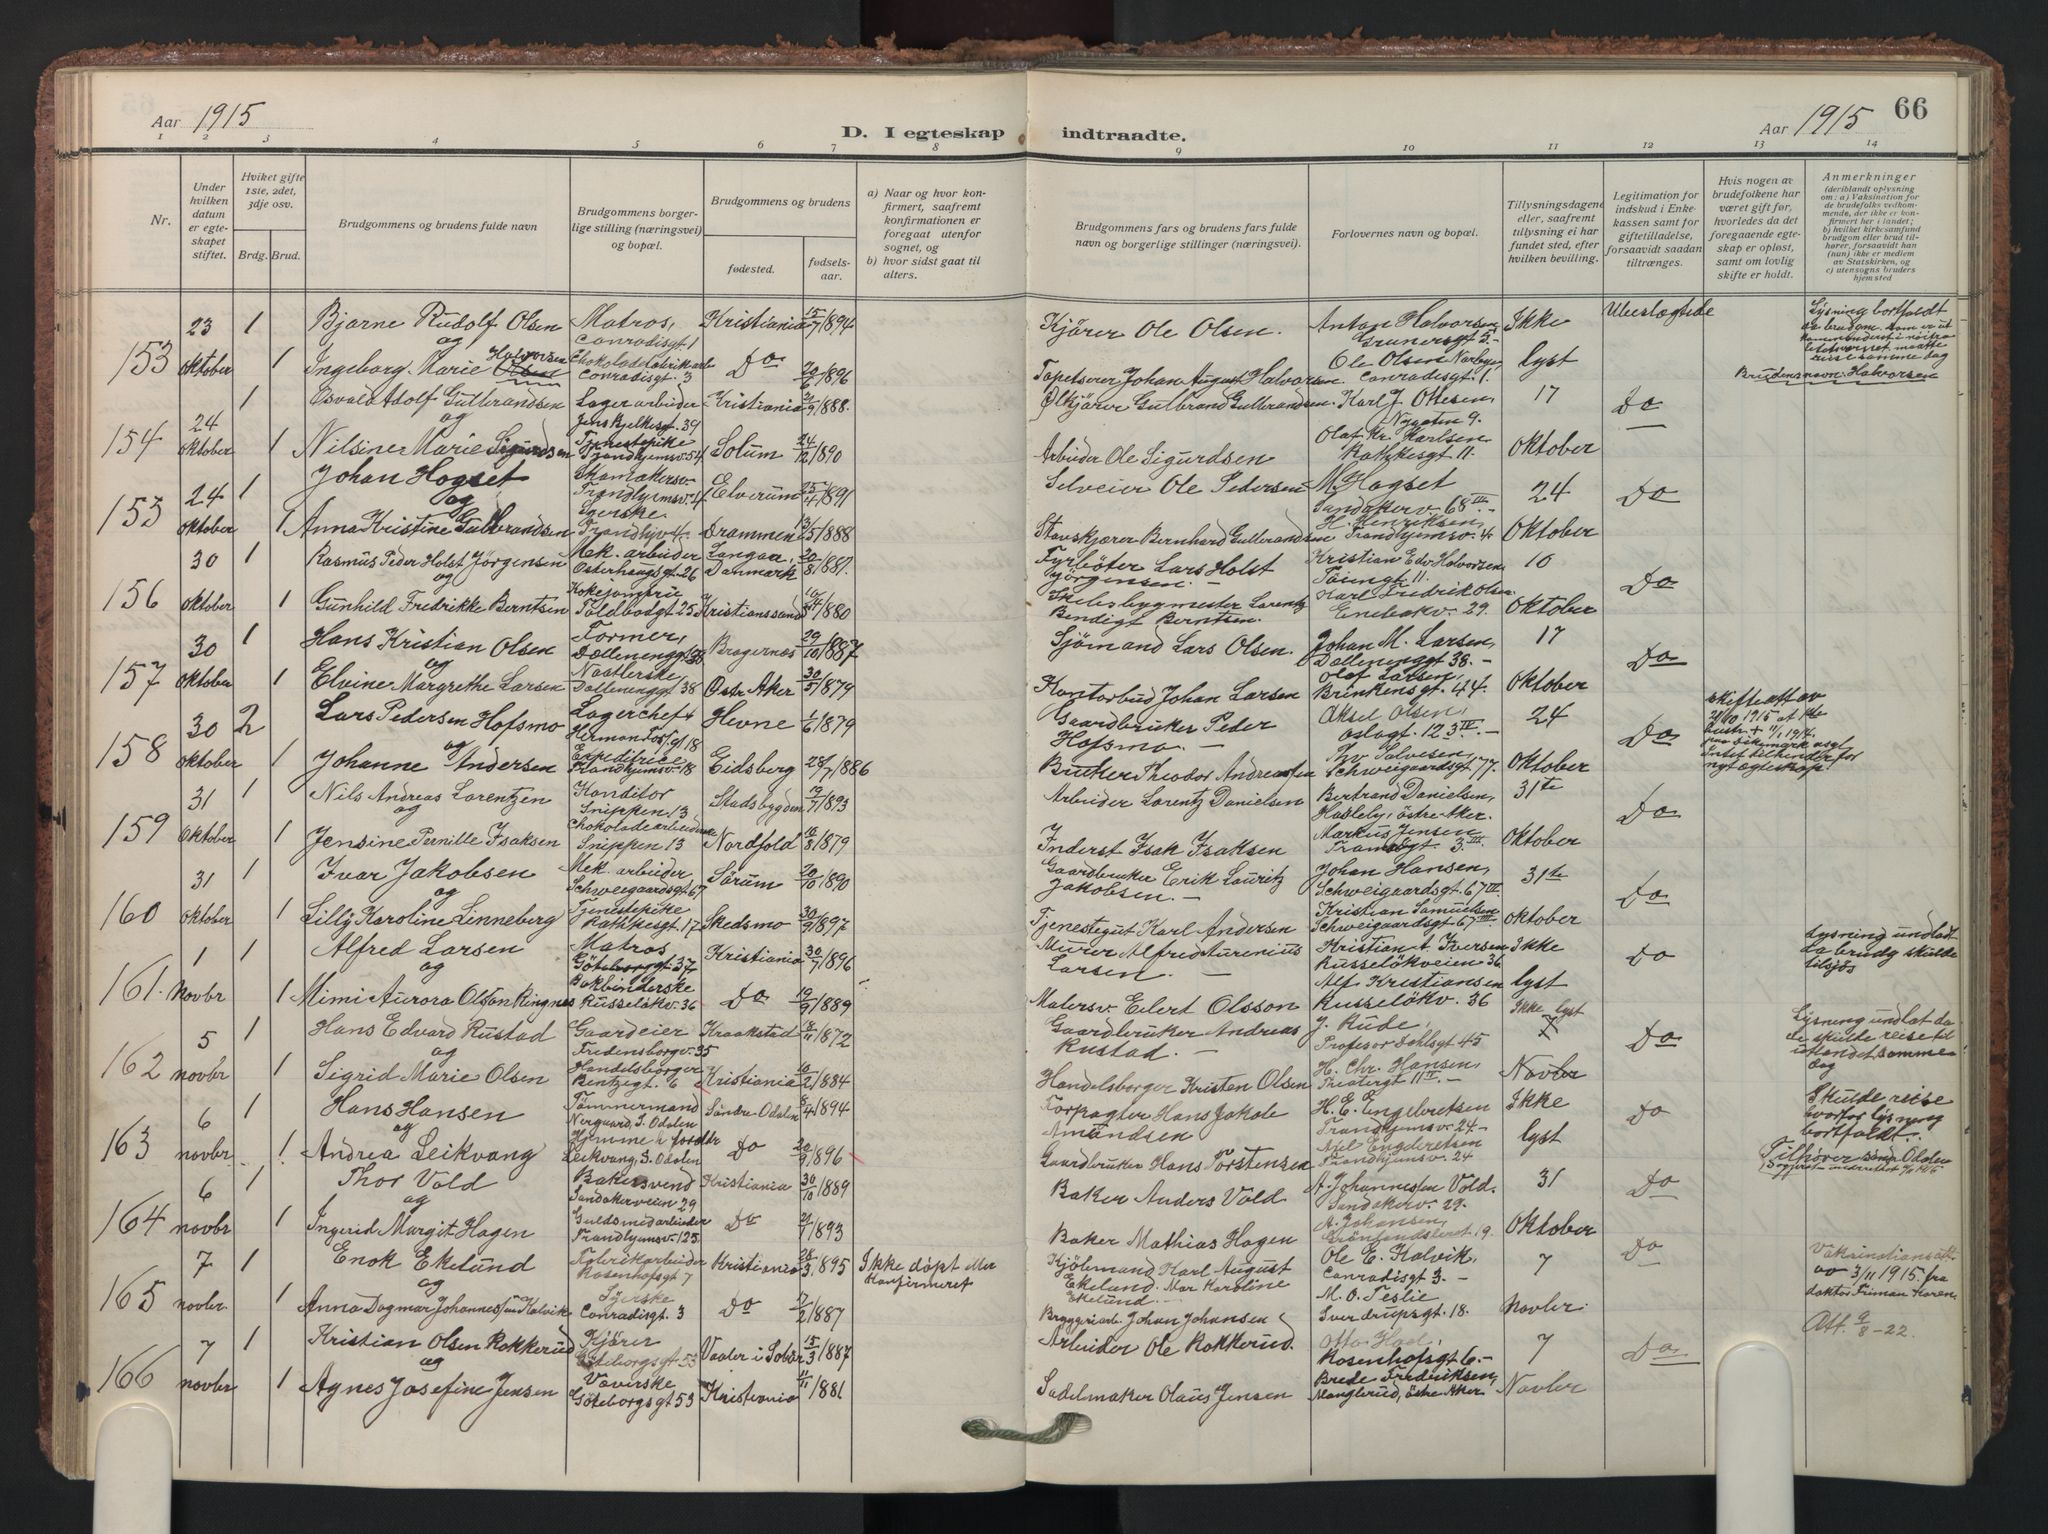 Aar 1915
D. I egteskap indtraadte.
Aar 1915
66
1 2 3 4 5 6 7 8 9 10 11 12 13 14
Nr.
Under hvilken datum er egteskapet stiftet.
Hviket gifte 1ste, 2det, 3dje osv.
Brdg. Brud.
Brudgommens og brudens fulde navn
Brudgommens borgerlige stilling (næringsvei) og bopæl.
Brudgommens og brudens
fødested.
fødselsaar.
a) Naar og hvor konfirmert, saafremt konfirmationen er foregaat utenfor sognet, og
b) hvor sidst gaat til alters.
Brudgommens fars og brudens fars fulde navn og borgerlige stillinger (næringsvei).
Forlovernes navn og bopæl.
Tillysningsdagene eller, saafremt tillysning ei har fundet sted, efter hvilken bevilling.
Legitimation for indskud i Enkekassen samt for giftetilladelse, forsaavidt saadan tiltrænges.
Hvis nogen av brudefolkene har været gift før, hvorledes da det foregaaende egteskap er opløst, samt om lovlig skifte er holdt.
Anmerkninger
(deriblandt oplysning om: a) Vaksination for de brudefolks vedkommende, der ikke er konfirmert her i landet;
b) hvilket kirkesamfund brudgom eller brud tilhører, forsaavidt han (hun) ikke er medlem av Statskirken, og
c) utensogns bruders hjemsted
153 23 oktober 1 Bjarne Rudolf Olsen Matros, Conradisgt 1 Kristiania 15/7 1894 Kjører Ole Olsen. Anton Halvorsen Grunersgt 3. Ikke Ubeslægtede
og
1 Ingeborg Marie Halvorsen Chokoladefabrikarb Conradisgt. 3 Do 20/6 1896 Tapetserer Johan August Halvorsen. Ole Olsen Conradisgt. 1. lyst
Lysning bortfaldt da brudgom. samme dag
Brudensnavn Halvorsen
154 24 oktober 1 Osvald Adolf Gulbrandsen Lagerarbeider Jens Bjelkesgt. 39 Kristiania 21/9 1888. Ølkjører Gulbrand Gulbrandsen. Karl J. Ottesen, Nygaten 9. 17 Do
og
1 Nilsine Marie Sigurdsen Tjenestepike Trondhjemsv. 54 Solum 24/12 1890 Arbeider Ole Sigurdsen Olaf Kr. Karlsen Rathkesgt 11. Oktober
153 24 oktober 1 Johan Hogset Skomakersv. Trondhjemsv. 4 Elverum 25/4 1891 Selveier Ole Pedersen M. Hogset Sandakerv. 68 III. 24 Do
og
1 Anna Kristine Gulbrandsen Syerske Trondhjv. 4 Drammen 13/5 1888 Stavskjærer Bernhard Gulbrandsen H. Henriksen, Trondhjemsv. 4. Oktober
156 30 oktober 1 Rasmus Peder Holst Jørgensen Mek. arbeider Osterhausgt. 26 Langaa, Danmark 20/8 1881. Fyrbøter Lars Holst Jørgensen. Kristian Edv Halvorsen Tøiengt. 11. 10 Do
og
1 Gunhild Fredrikke Berntsen Kokejomfru Toldbodgt 25 Kristianssand 1880 Skibsbygmester Lorentz Bendigt Berntsen. Karl Fredrik Olsen Enebakv. 29. Oktober
157 30 oktober 1 Hans Kristian Olsen Former, Dælenenggt 38 Bragernæs 29/10 1887 Sjømand Lars Olsen. Johan M. Larsen Dælenenggt 38. 17 Do
og
1 Elvine Margrethe Larsen Naatlerske, Dælenenggt 38 Østr Aker 30/5 1879 Kontorbud Johan Larsen Olaf Larsen, Brinkensgt. 44. Oktober
158 30 oktober 2 Lars Pedersen Hofsmo Lagerchef Herman Fossgt 18 Hevne 1/6 1879 Gaardbruker Peder Hofsmo. Aksel Olsen, Oslogt. 12 3 IV. 24 Do
og
1 Johanne Andersen Expeditrice Trondhjemsv. 18 Eidsberg 28/7 1886 Bruker Theodor Andreassen Schweigaardsgt 77. Oktober
skifteatt av 21/10 1915 at 1ste hustr. + 1914.
159 31 oktober 1 Nils Andreas Lorentzen Konditor Snippen 13 Stadsbygden 19/7 1893 Arbeider Lorentz Danielsen Bertrand Danielsen, Hasleby, østre Aker. 31te Do
og
1 Jensine Pernille Isaksen Chokoladearbeiderske Snippen 13 Nordfold 16/8 1879 Inderst Isak Isaksen Markus Jensen 3 III. Oktober
160 31 oktober 1 Ivar Jakobsen Mek. arbeider Schweigaardsgt 67 Sørum 20/10 1890 Gaardbruker Erik Lauritz Jakobsen. Johan Hansen, Schweigaardsgt. 67 III 31te Do
og
1 Lilly Karoline Linneberg Tjenestepike Rathkesgt. 17 Skedsmo 30/9 1897 Tjenestegut Karl Andersen Kristian Samuelsen Schweigaardsgt 67 III oktober
161. 1 Novbr 1 Alfred Larsen Matros Göteborggt. 37 Kristiania 30/7 1896 Murer Alfred Aurenius Larsen. Kristian A. Iversen Russeløkveien 36 Ikke Do
og
1 Mimi Aurora Olson Ringnes Bokbinderske Russeløkv. 36 Do 19/9 1889 Malersv. Eilert Olsson Alf Kristiansen Russeløkv. 36 lyst
Lysning undlodt da brudg skulde tilsjøs
162 5 novbr 1 Hans Edvard Rustad Gaardeier Fredensborgv. 35 Kraakstad 18/11 1872 Gaardbruker Andreas Rustad. J. Rude, Profesor Dahlsgt 45 Ikke lyst 7 Do
og
1 Sigrid Marie Olsen Handelsborger Bentzegt. 6 Kristiania 10/2 1884 Handelsborger Kristen Olsen H. Chr. Hansen, Theatergt 11 IV. Novber
Lysning undlat da de skulde reise til utlandet samme dag
163 6 novber. 1 Hans Hansen Tømmermand Nergaard, S. Odalen Søndre Odalen 8/4 1894 Forpagter Hans Jakob Amundsen H. E. Engebretsen Trondhjemsv. 24. Ikke Do
og
1 Andrea Leikvang Hjemme h. foreldre Leikvang, S. Odalen Do 20/9 1896 Gaardbruker Hans Torstensen Engebretsen Trondhjemsv. 24 lyst
Skulde reise hvorfor lysning bortfaldt.
Tilhører søndre Odalen
164 6 novbr 1 Thor Vold Bakersvend Sandakerveien 29 Kristiania 30/10 1889 Baker Anders Vold A. Johannessen Vold. Sandakerv. 29. 31 Do
og
1 Ingerid Margit Hagen Guldsmedarbeider Trondhjemsv. 125 Do 1893 Baker Mathias Hagen A. Johansen, Grønlandsleret 19. Oktober
165 7 novber. 1 Enok Ekelund Fabrikarbeider Rosenhofsgt 7 Kristiania 28/3 1895 Ikke døpt eller Konfirmeret Kjølemand Karl August Ekelund. Mor Karoline Ekelund. Ole E. Kalvik, Conradisgt 3. 7 Do
og
1 Anna Dagmar Johannessen Kalvik Syerske Conradisgt. 3 Do 7/2 1887 Bryggeriarb. Johan Johansen M. O. Leslie Sverdrupsgt. 18. Novber.
Vaksinationsatt av 3/11 1915. fra doktor
Att. 9/8 - 22.
166 7 novber 1 Kristian Olsen Rokkerud Kjører Göteborgsgt 53 Vaaler i Solør 15/3 1887 Arbeider Ole Rokkerud. Otto Rosenhofsgt 6. 7 Do
og
1 Agnes Josefine Jensen Væverske Göteborgsgt 53 Kristiania 1881 Sadelmaker Olaus Jensen Brede Fredriksen, Manglerud, østre Aker Novber